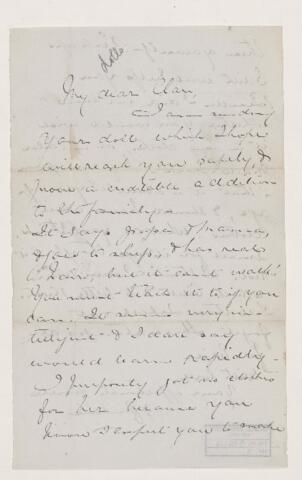 doll
My dear Clara,
I am sending
your doll which I hope
will reach you safely &
prove a creditable addition
to the family.
It says papa & mama,
& goes to sleep, & has real
hair, but it can't walk.
You must teach it to if you
can. It seems very in-
telligent & I dare say
would learn rapidly.
I purposely got no clothes
for her because you
know I expect you to make